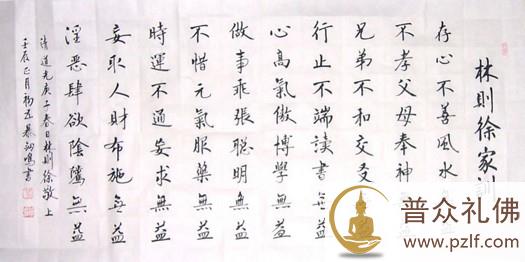 林則徐家訓
存心不善風水
不孝父母奉神
兄弟不和交友
行止不端讀書無益
心高氣傲博學無益
做事乖張聰明無益
不惜元氣服藥無益
時運不通妄求無益
妄取人財布施無益
淫惡肆欲陰騭無益
清道光庚子春日林則徐敬上
壬辰正月初五
鳴書
普众礼佛
www.pzlf.com